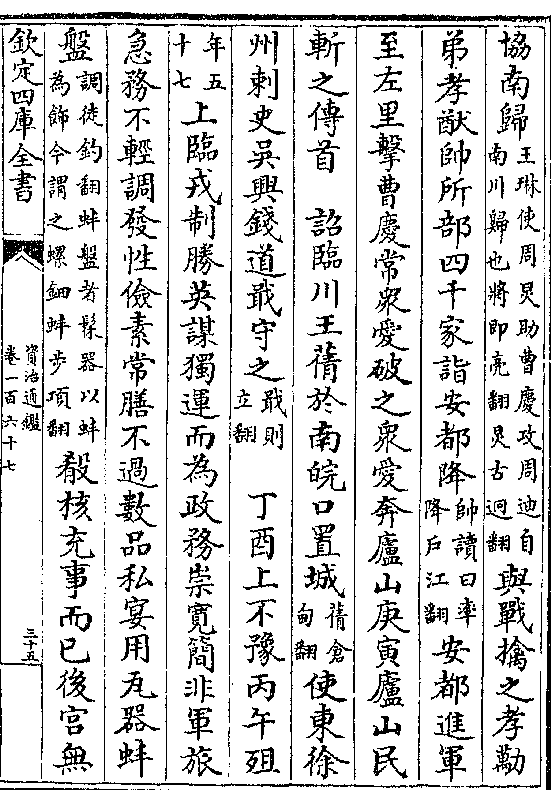 協南歸王琳使周炅助曹慶攻周迪自南川歸也將即亮翻炅古迥翻與戰擒之孝勱
弟孝猷帥所部四千家詣安都降帥讀曰率降戶江翻安都進軍
至左里擊曹慶常衆愛破之衆愛奔廬山庚寅廬山民
斬之傳首　詔臨川王蒨於南皖口置城蒨倉甸翻使東徐
州刺史吳興錢道戢守之戢則立翻　丁酉上不豫丙午殂
年五十七上臨戎制勝英謀獨運而為政務崇寛簡非軍旅
急務不輕調發性儉素常膳不過數品私宴用瓦器蚌
盤調徒釣翻蚌盤者髹器以蚌為飾今謂之螺鈿蚌步項翻殽核充事而已後宮無
欽定四庫全書
資治通鑑
卷一百六十七
三十五